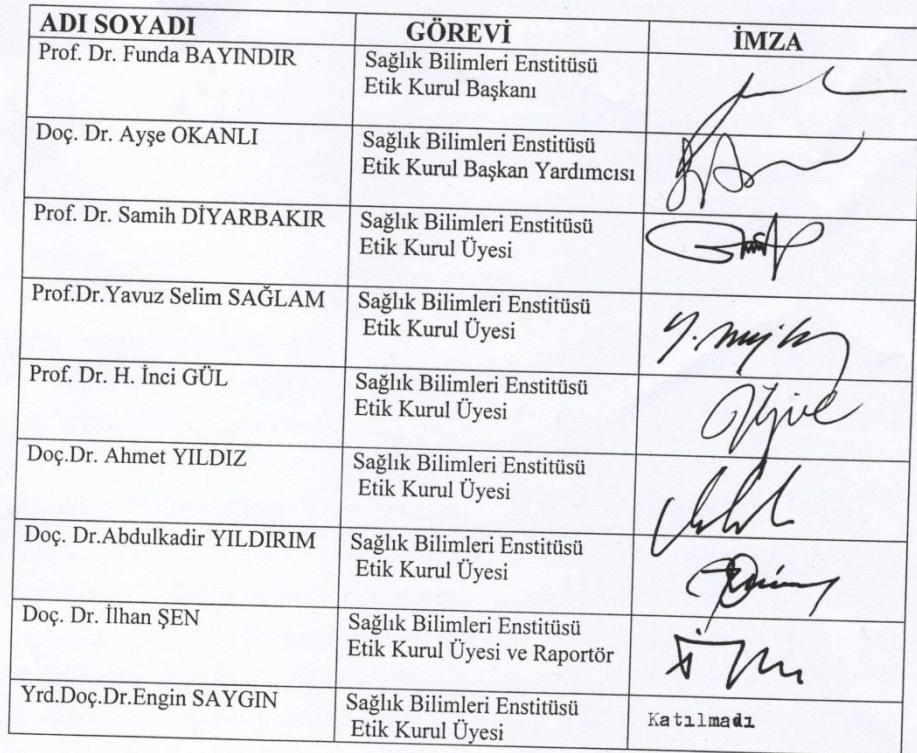 ADI SOYADI GÖREVİ İMZA
Prof. Dr. Funda BAYINDIR Sağlık Bilimleri Enstitüsü
Etik Kurul Başkanı
Doç. Dr. Ayşe OKANLI Sağlık Bilimleri Enstitüsü
Etik Kurul Başkan Yardımcısı
Prof. Dr. Samih DİYARBAKIR Sağlık Bilimleri Enstitüsü
Etik Kurul Üyesi
Prof.Dr.Yavuz Selim SAĞLAM Sağlık Bilimleri Enstitüsü
Etik Kurul Üyesi
Prof. Dr. H. İnci GÜL Sağlık Bilimleri Enstitüsü
Etik Kurul Üyesi
Doç.Dr. Ahmet YILDIZ Sağlık Bilimleri Enstitüsü
Etik Kurul Üyesi
Doç. Dr.Abdulkadir YILDIRIM Sağlık Bilimleri Enstitüsü
Etik Kurul Üyesi
Doç. Dr. İlhan ŞEN Sağlık Bilimleri Enstitüsü
Etik Kurul Üyesi ve Raportör
Yrd.Doç.Dr.Engin SAYGIN Sağlık Bilimleri Enstitüsü Katılmadı
Etik Kurul Üyesi